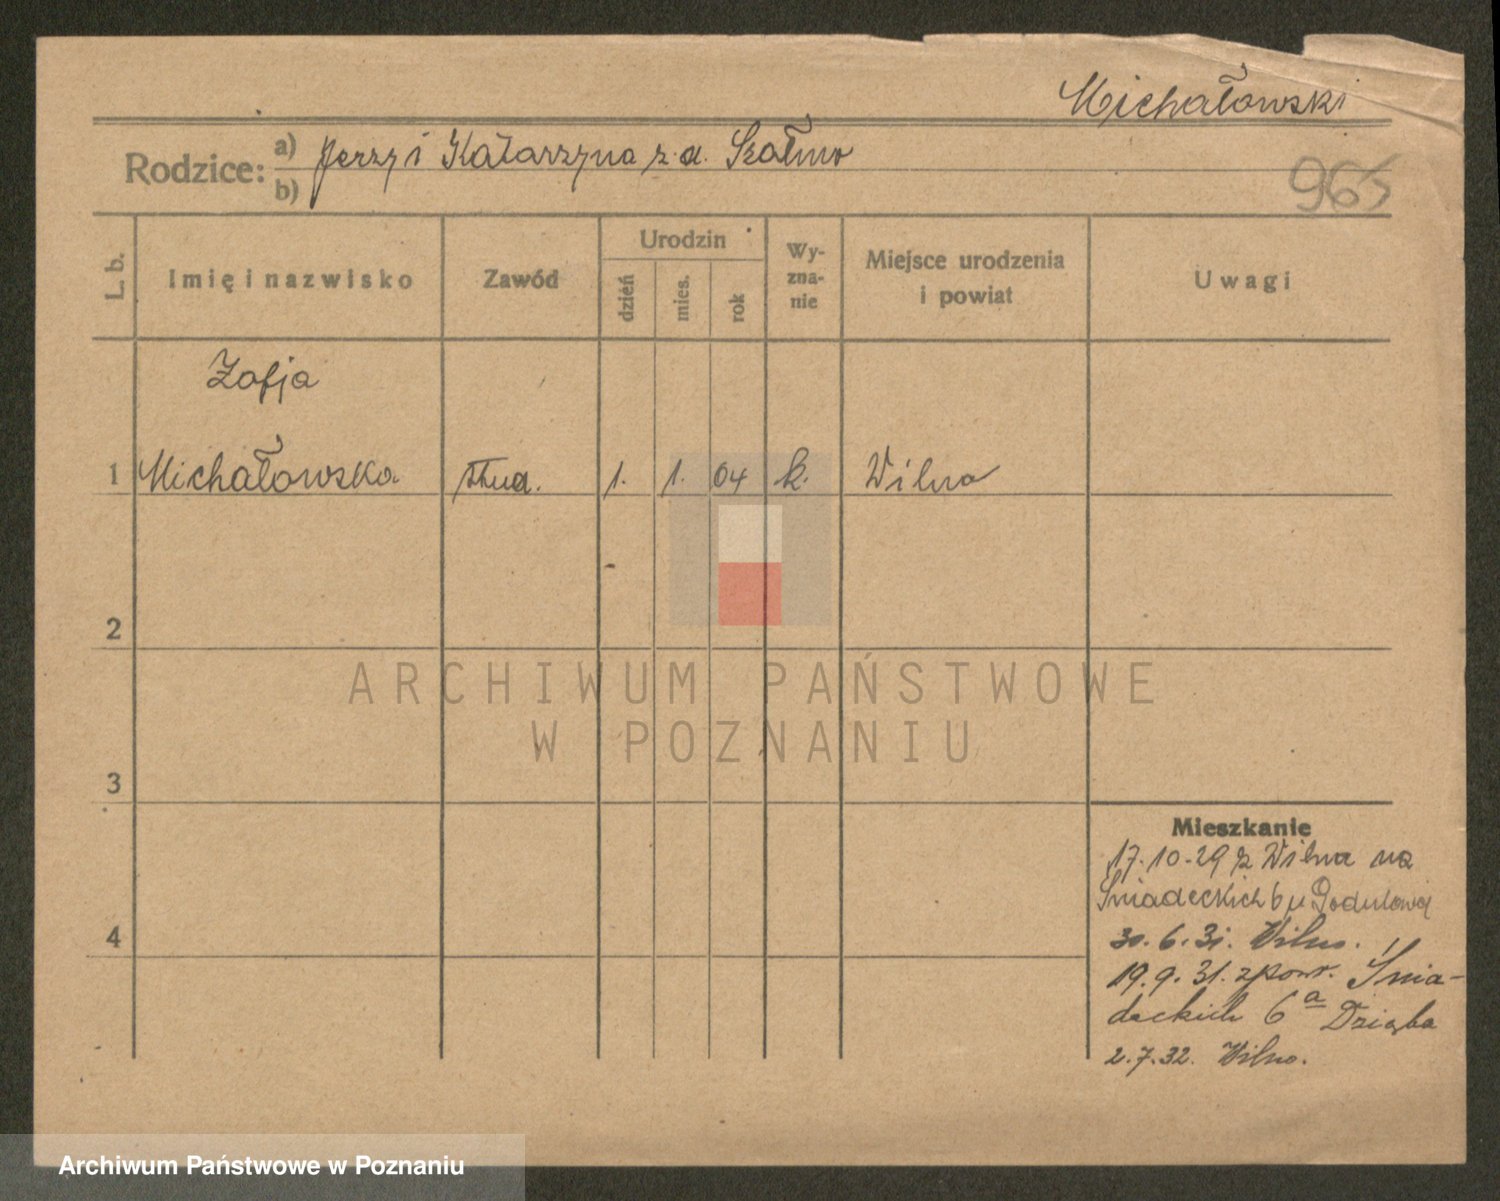 Michałowski
Rodzice: a) Jerzy i Katarzyna z d.
b)
965
L. b.
Imię i nazwisko
Zawód
Urodzin
dzień
mies.
rok
Wy-
zna-
nie
Miejsce urodzenia
i powiat
Uwagi
Zofja
1 Michałowska stud. 1. 1. 04 k. Wilno
2
3
4
ARCHIWUM PAŃSTWOWE
W POZNANIU
Mieszkanie
17.10.29 z Wilna na
Śniadeckich 6 u
30.6.31. Wilno.
19.9.31. z pow. Śnia-
deckich 6a Dzięba
2.7.32. Wilno.
Archiwum Państwowe w Poznaniu